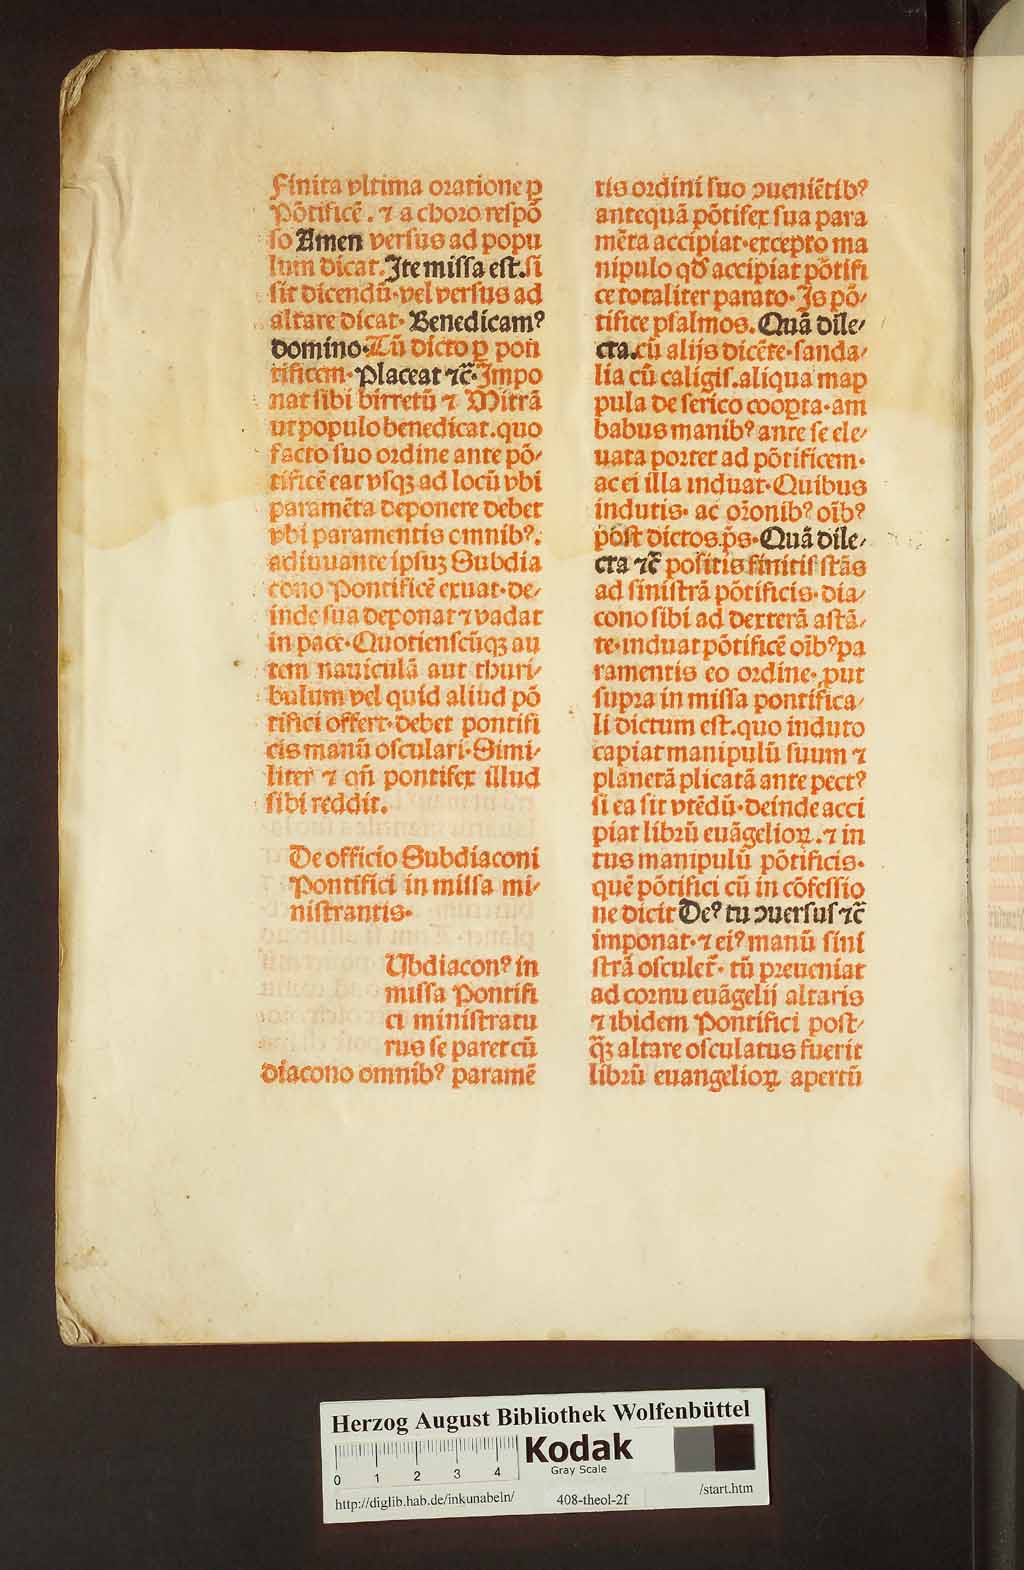 Finita vltima oratione ꝑ
Põtificẽ. ⁊ a choro respõ
so Amen versus ad popu
lum dicat. Ite missa est. si
sit dicendũ· vel versus ad
altare dicat· Benedicamꝰ
domino· Tũ dicto ꝑ pon
tificem· Placeat ⁊c̃· Impo
nat sibi birretũ ⁊ Mitrã
ut populo benedicat. quo
facto suo ordine ante põ⸗
tificẽ eat vsqꝫ ad locũ vbi
paramẽta deponere debet
vbi paramentis omnibꝰ.
adiuuante ipsuꝫ Subdia
cono Pontificẽ exuat· de⸗
inde sua deponat ⁊ vadat
in pace· Quotienscũqꝫ au
tem nauiculã aut thuri⸗
bulum vel quid aliud põ
tifici offert· debet pontifi
cis manũ osculari· Simi⸗
liter ⁊ qñ pontifex illud
sibi reddit.
De officio Subdiaconi
Pontifici in missa mi⸗
nistrantis·
Ubdiaconꝰ in
missa Pontifi
ci ministratu
rus se paret cũ
diacono omnibꝰ paramẽ
tis ordini suo ↄueniẽtibꝰ
antequã põtifex sua para
mẽta accipiat· excepto ma
nipulo qđ accipiat põtifi
ce totaliter parato· Is põ⸗
tifice psalmos. Quã dile⸗
cta. cũ alijs dicẽte· sanda⸗
lia cũ caligis. aliqua map
pula de serico cooꝑta· am
babus manibꝰ ante se ele⸗
uata portet ad põtificem·
ac ei illa induat· Quibus
indutis· ac or̃onibꝰ oĩbꝰ
post dictos. p̃s· Quã dile⸗
cta ⁊c̃ positis finitis stãs
ad sinistrã põtificis· dia⸗
cono sibi ad dexterã astã⸗
te· induat põtificẽ oĩbꝰ pa
ramentis eo ordine· ꝓut
supra in missa pontifica⸗
li dictum est. quo induto
capiat manipulũ suum ⁊
planetã plicatã ante pectꝰ
si ea sit vtẽdũ· deinde acci
piat librũ euãgelioꝝ. ⁊ in
tus manipulũ põtificis·
quẽ põtifici cũ in cõfessio
ne dicit Deꝰ tu ↄuersus ⁊c̃
imponat· ⁊ eiꝰ manũ sini
strã osculet̃· tũ preueniat
ad cornu euãgelij altaris
⁊ ibidem Pontifici post⸗
q̃ꝫ altare osculatus fuerit
librũ euangelioꝝ apertũ
Herzog August Bibliothek Wolfenbüttel
0 1 2 3 4
Kodak
Gray Scale
http://diglib.hab.de/inkunabeln/ 408-theol-2f /start.htm